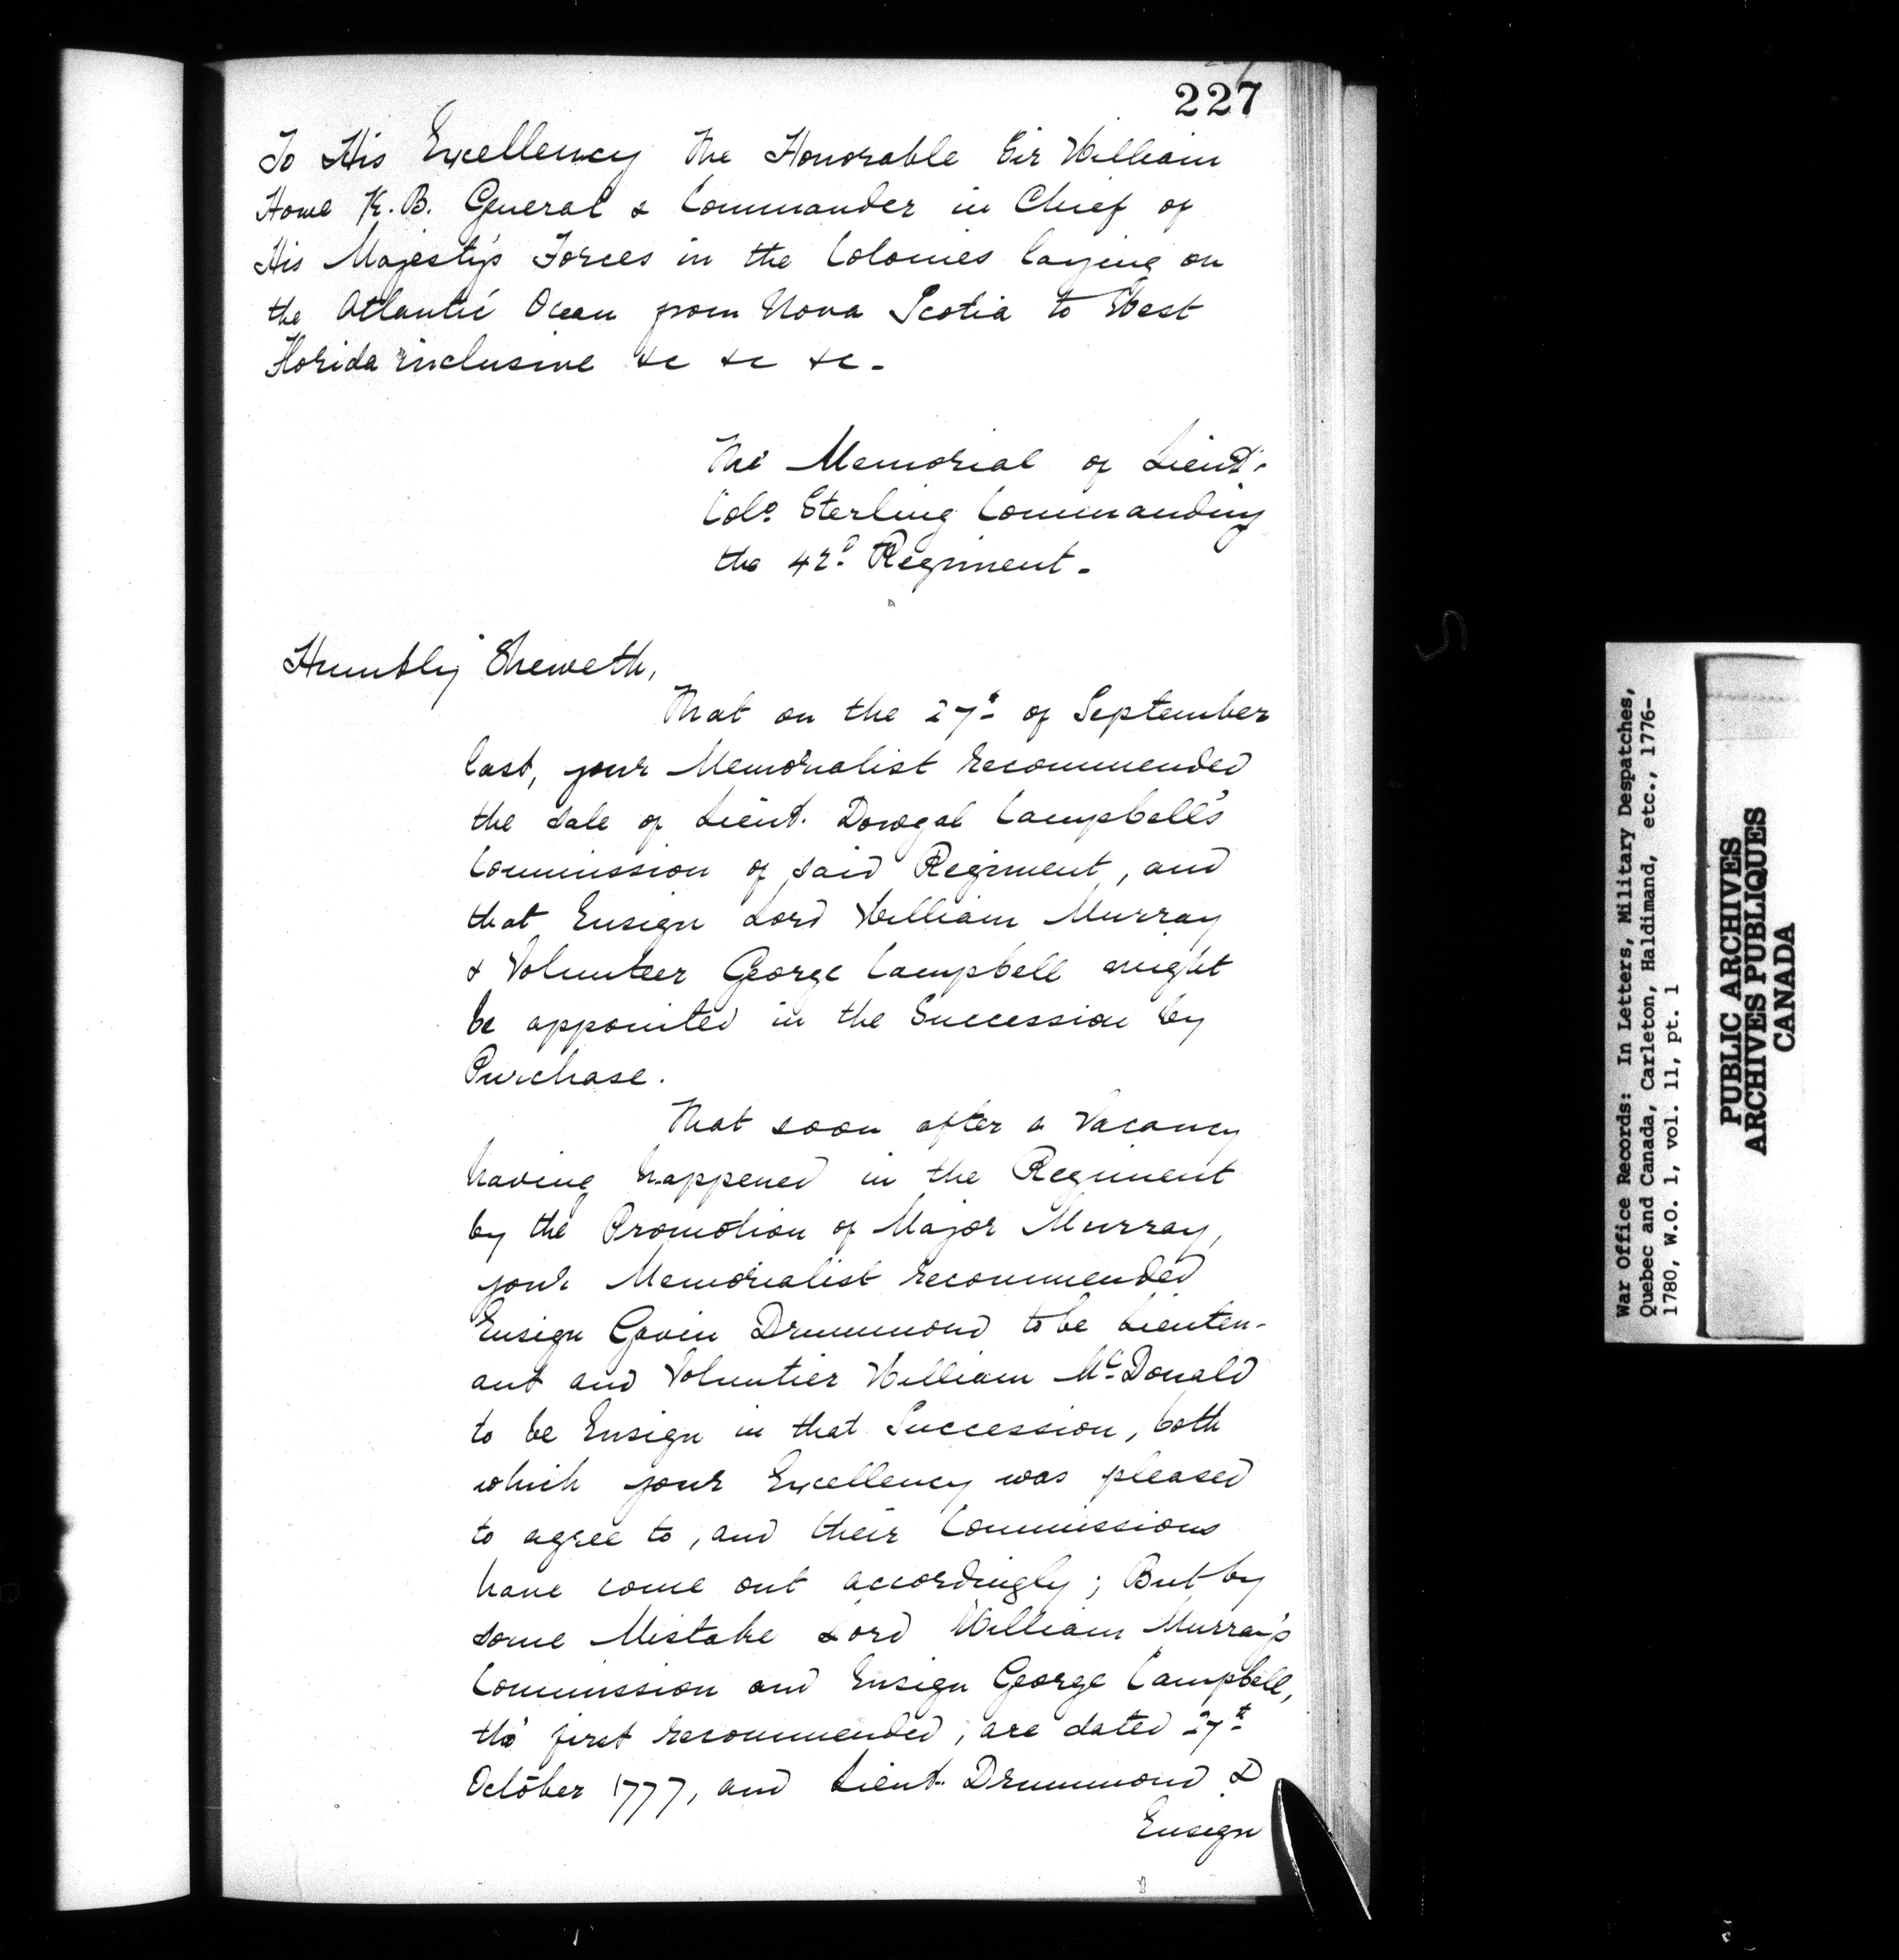 227
To His Excellency The Honorable Sir William
Howe K.B. General & Commander in Chief of
His Majesty's Forces in the Colonies laying on
the Atlantic Ocean from Nova Scotia to West
Florida inclusive &c &c &c -
The Memorial of Lieut.
Colo. Sterling Commanding
the 42d. Regiment -
Humbly Sheweth,
That on the 27th of September
last, your Memorialist recommended
the sale of Lieut. Dowgal Campbell's
Commission of said Regiment, and
that Ensign Lord William Murray
& Volunteer George Campbell might
be appointed in the Succession by
Purchase.
That soon after a Vacancy
having happened in the Regiment
by the Promotion of Major Murray,
your Memorialist recommended
Ensign Gavin Drummond to be Lieuten-
ant and Voluntier William McDonald
to be Ensign in that Succession, both
which your Excellency was pleased
to agree to, and their Commissions
have come out accordingly; But by
some Mistake Lord William Murray's
Commission and Ensign George Campbell,
tho' first recommended, are dated 27th
October 1777, and Lieut. Drummond &
Ensign
War Office Records: In Letters, Military Despatches,
Quebec and Canada, Carleton, Haldimand, etc., 1776-
1780, W.O. 1, vol. 11, pt. 1
PUBLIC ARCHIVES
ARCHIVES PUBLIQUES
CANADA